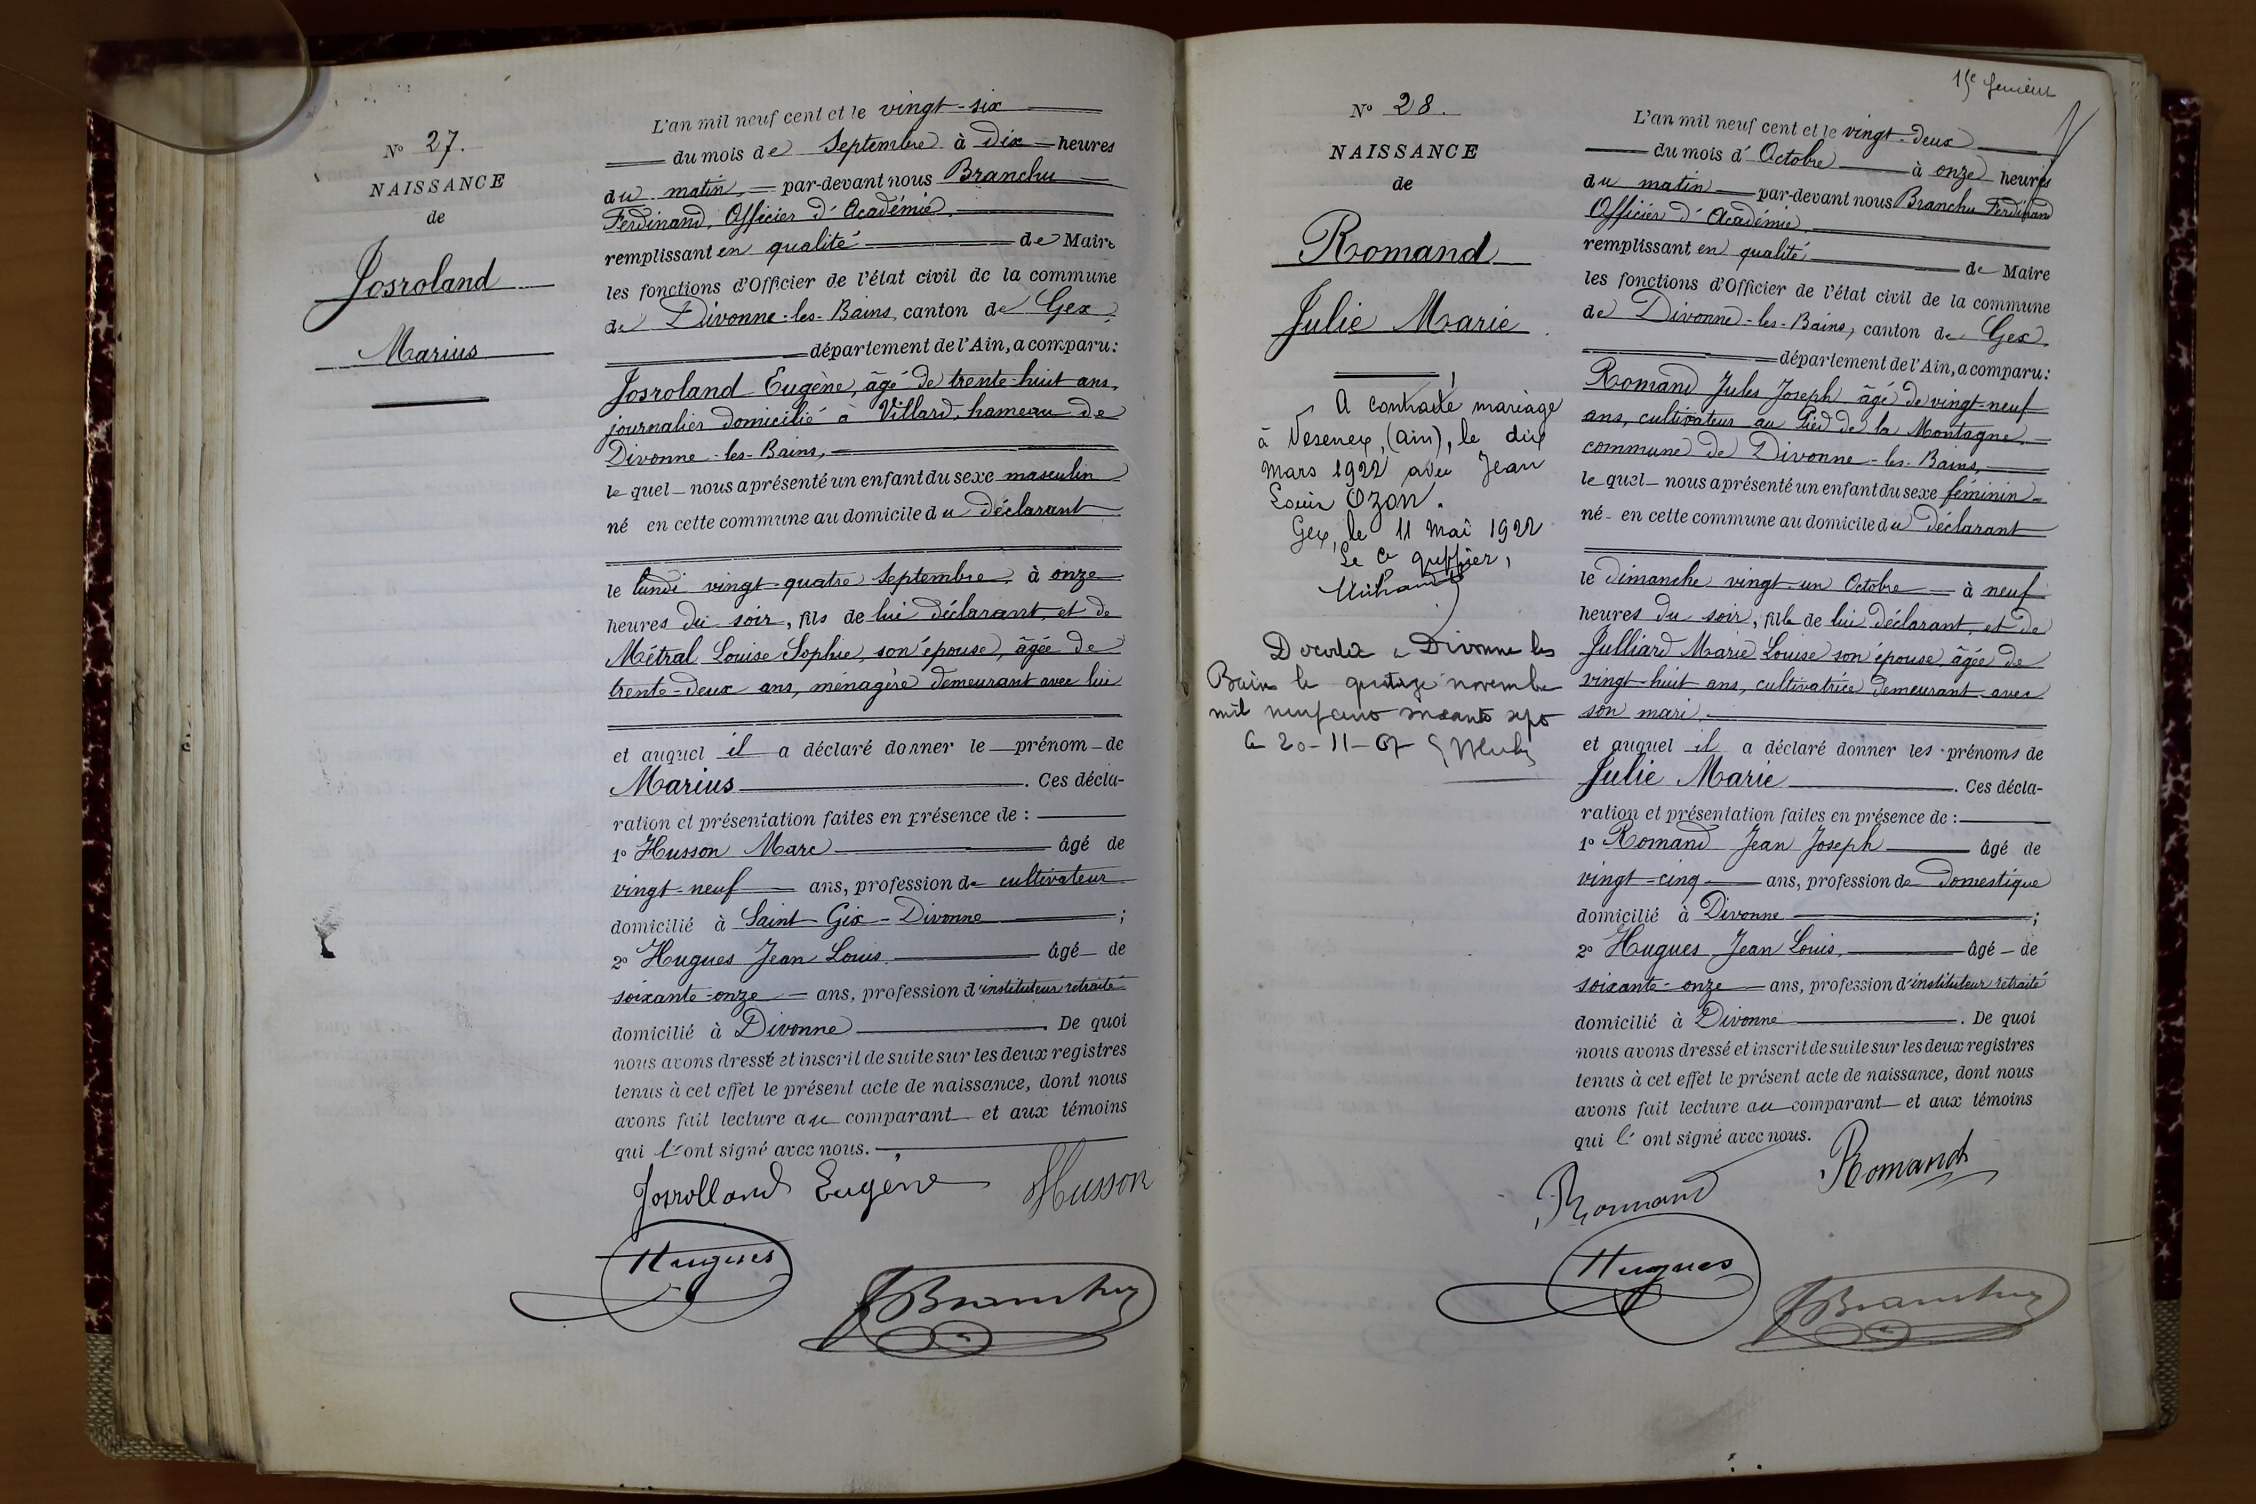 Nº 27.
NAISSANCE
de
Josroland
Marius
L'an mil neuf cent et le vingt-six
du mois de Septembre à Dix heures
du matin, par-devant nous Branchu
Ferdinand, Officier d'Académie,
remplissant en qualité de Maire
les fonctions d'Officier de l'état civil de la commune
de Divonne-les-Bains, canton de Gex,
département de l'Ain, a comparu:
Josroland Eugène, âgé de trente-huit ans,
journalier domicilié à Villard, hameau de
Divonne-les-Bains,
lequel nous a présenté un enfant du sexe masculin
né en cette commune au domicile du déclarant
le lundi vingt-quatre Septembre, à onze
heures du soir, fils de lui déclarant, et de
Métral Louise Sophie, son épouse, âgée de
trente-deux ans, ménagère demeurant avec lui
et auquel il a déclaré donner le prénom de
Marius. Ces décla-
ration et présentation faites en présence de :
1º Husson Marc âgé de
vingt-neuf ans, profession de cultivateur
domicilié à Saint Gix-Divonne ;
2º Hugues Jean Louis âgé de
soixante-onze ans, profession d'instituteur retraité
domicilié à Divonne. De quoi
nous avons dressé et inscrit de suite sur les deux registres
tenus à cet effet le présent acte de naissance, dont nous
avons fait lecture au comparant et aux témoins
qui l'ont signé avec nous.
Josrolland Eugène Husson
Hugues
Branchu
15e feuillet
Nº 28.
NAISSANCE
de
Romand
Julie Marie
A contracté mariage
à Vesenex, (Ain), le dix
Mars 1922 avec Jean
Louis Ozon.
Gex, le 11 Mai 1922
Le Ce greffier,
Décédée à Divonne les
Bains le quatorze novembre
mil neuf cent soixante sept
le 20-11-67
L'an mil neuf cent et le vingt-deux
du mois d'Octobre à onze heures
du matin par-devant nous Branchu Ferdinand
Officier d'Académie
remplissant en qualité de Maire
les fonctions d'Officier de l'état civil de la commune
de Divonne-les-Bains, canton de Gex,
département de l'Ain, a comparu:
Romand Jules Joseph âgé de vingt-neuf
ans, cultivateur au Pied de la Montagne,
commune de Divonne-les-Bains,
lequel nous a présenté un enfant du sexe féminin
né en cette commune au domicile du déclarant
le dimanche vingt-un Octobre à neuf
heures du soir, fille de lui déclarant, et de
Julliard Marie Louise son épouse âgée de
vingt-huit ans, cultivatrice demeurant avec
son mari,
et auquel il a déclaré donner les prénoms de
Julie Marie. Ces décla-
ration et présentation faites en présence de :
1º Romand Jean Joseph âgé de
vingt-cinq ans, profession de domestique
domicilié à Divonne ;
2º Hugues Jean Louis, âgé de
soixante-onze ans, profession d'instituteur retraité
domicilié à Divonne. De quoi
nous avons dressé et inscrit de suite sur les deux registres
tenus à cet effet le présent acte de naissance, dont nous
avons fait lecture au comparant et aux témoins
qui l'ont signé avec nous.
Romand Romand
Hugues
Branchu